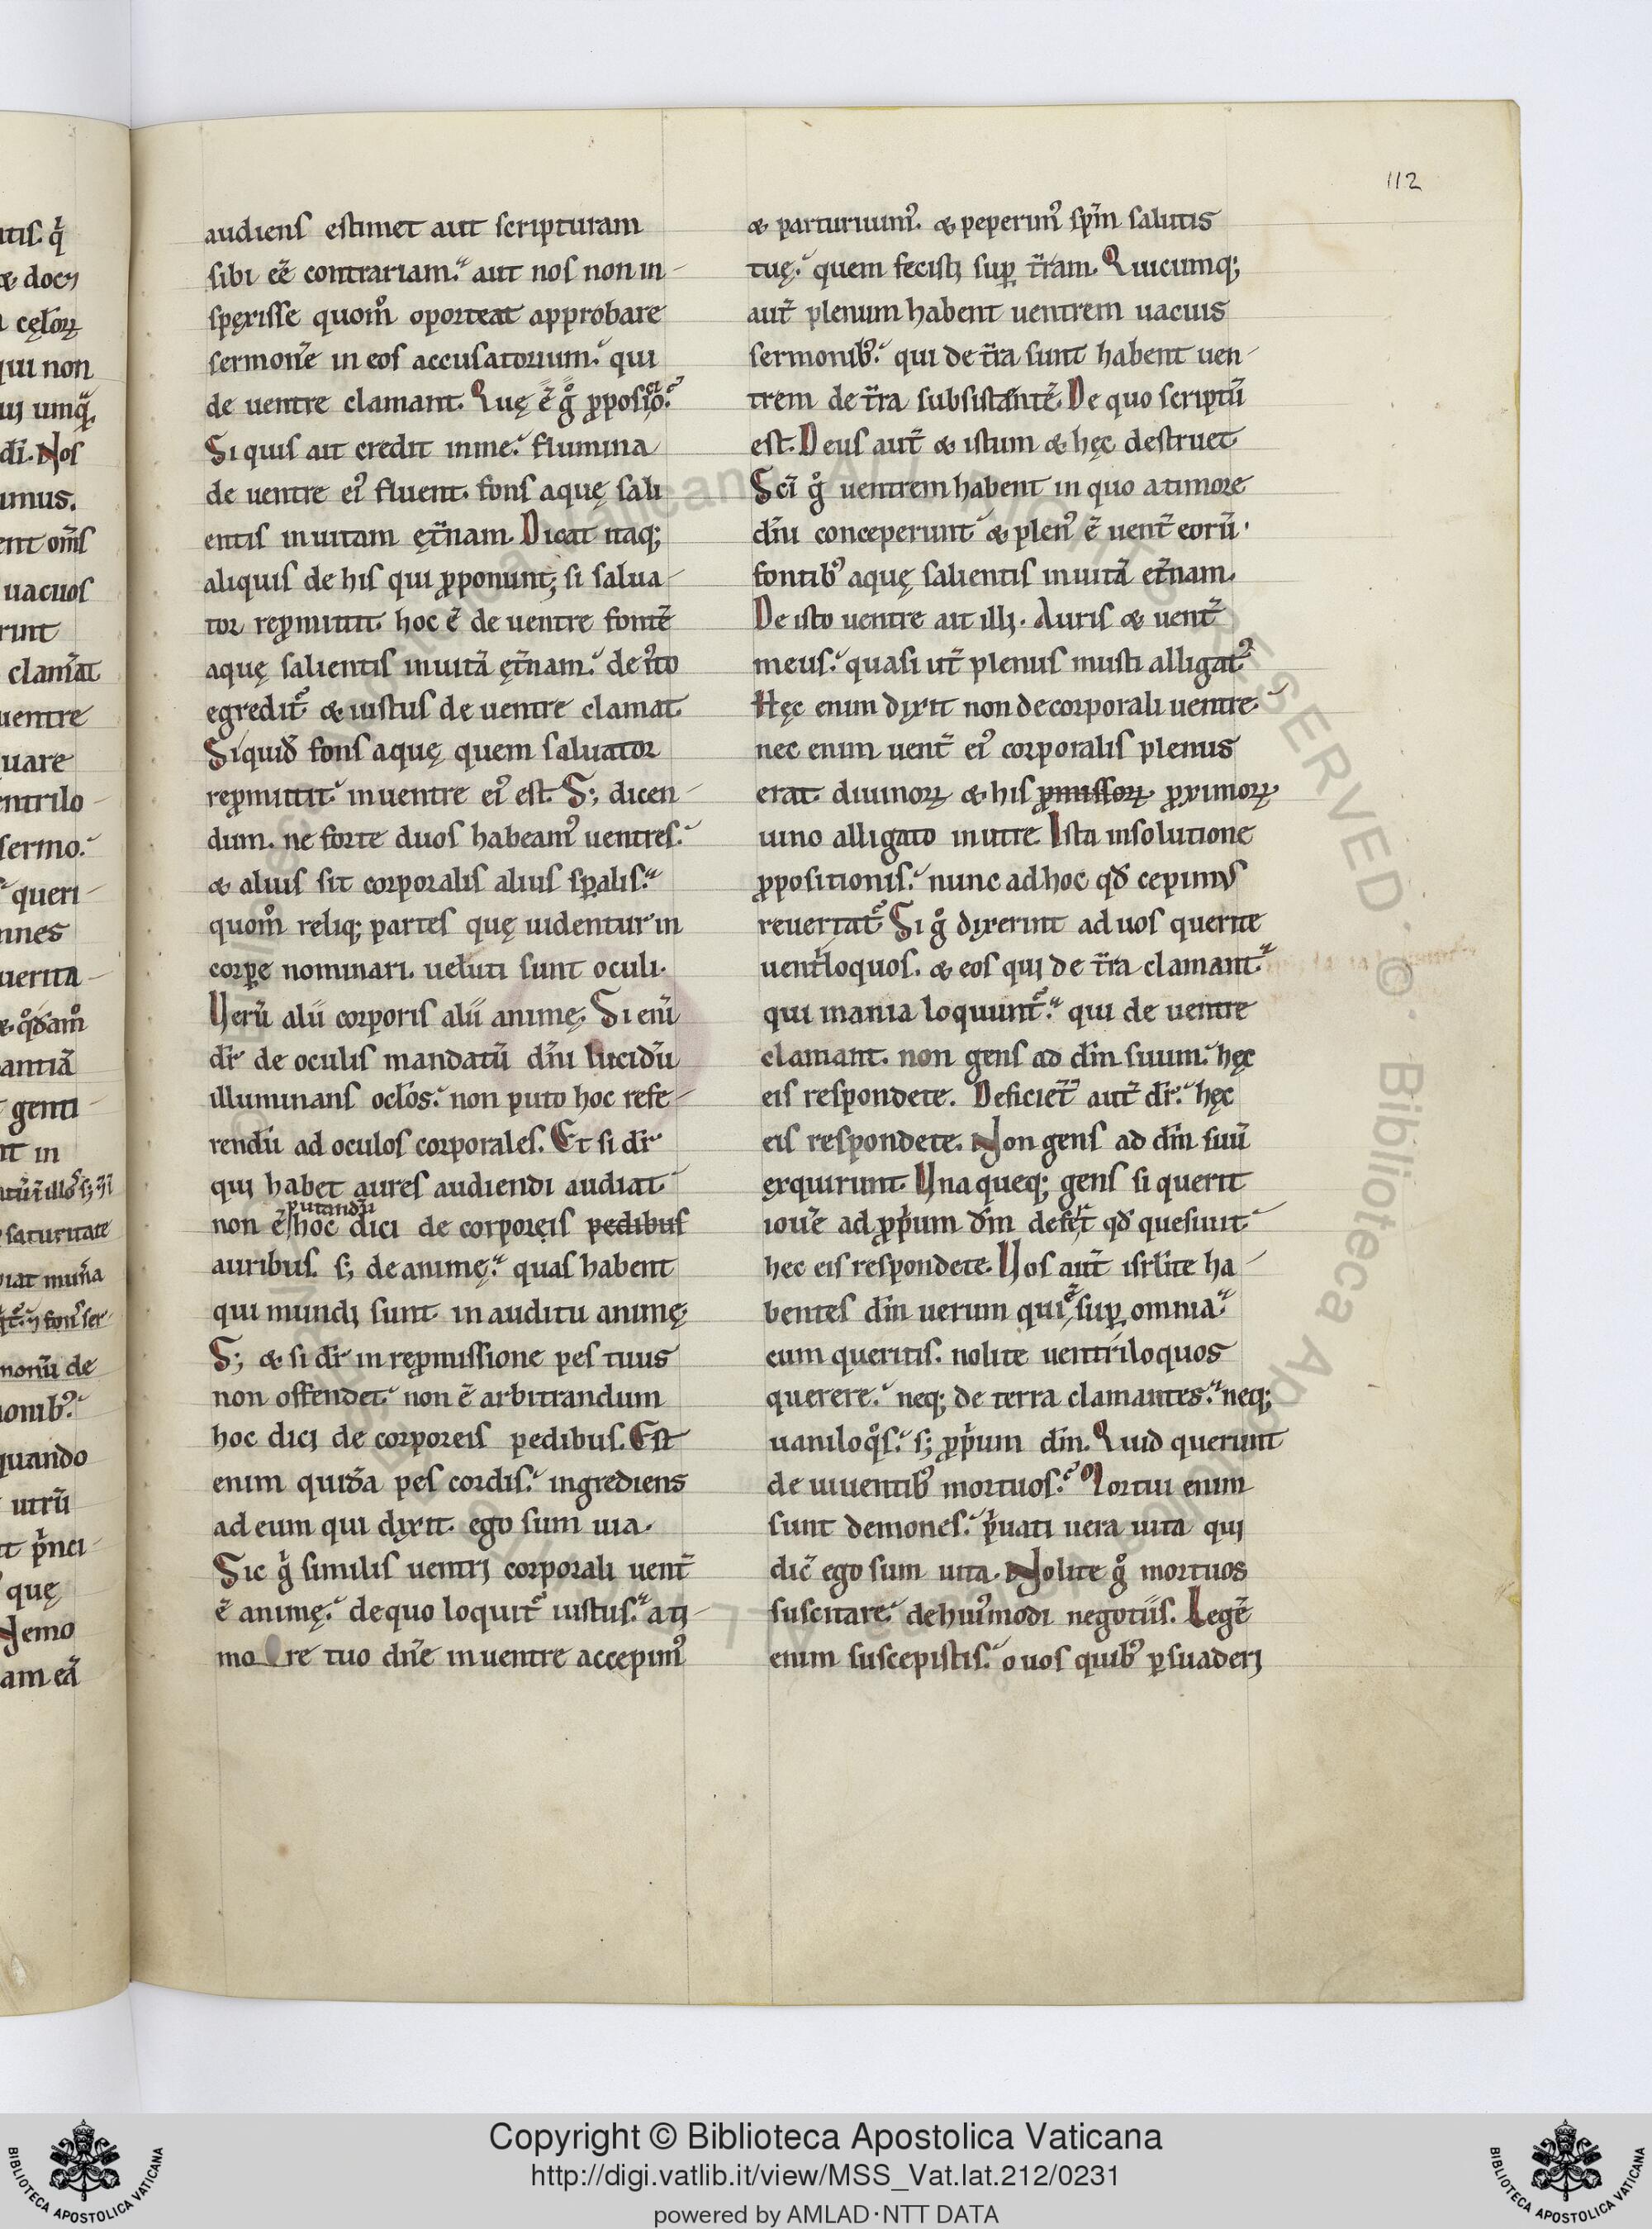 112
audiens estimet aut scripturam
sibi eē contrariam. aut nos non in-
spexisse quom̊ oporteat approbare
sermonē in eos accusatorium. qui
de uentre clamant. Quę ē g̊ ꝓpositio.
Si quis ait credit in me. flumina
de uentre eiꝰ fluent. fons aquę sali
entis in uitam ęt̄nam. Dicat itaq;
aliquis de his qui ꝓponunt; si salua-
tor reꝓmittit hoc ē de uentre fontē
aquę salientis in uitā ęt̄nam. de
egredit᷑ & iustus de uentre clamat.
Siquid̄ fons aquę quem saluator
reꝓmittit in uentre eiꝰ est. S; dicen-
dum. ne forte duos habeamꝰ uentres.
& alius sit corporalis alius sp̄alis.
quom̊ reliq; partes quę uidentur in
corꝑe nominari. ueluti sunt oculi.
Verū alii corporis alii animę. Si enī
dr̄ de oculis mandatū dn̄i lucidū
illuminans oc̄los. non puto hoc refe-
rendū ad oculos corporales. Et si dr̄
qui habet aures audiendi audiat
putandū
non ē hoc dici de corporeis pedibus
auribus. s; de animę. quas habent
qui mundi sunt in auditu animę
S; & si dr̄ in reꝓmissione pes tuus
non offendet non ē arbitrandum
hoc dici de corporeis pedibus. Est
enim quid̄ā pes cordis. ingrediens
ad eum qui dixit. ego sum uia.
Sic g̊ similis uentri corporali uent̄
ē animę. de quo loquit᷑ iustus. a ti-
mo re tuo dn̄e in uentre accepimꝰ
& parturiuimꝰ. & peperimꝰ sp̄m salutis
tuę. quem fecisti suꝑ t̄ram. Quicumq;
aut̄ plenum habent uentrem uacuis
sermonibꝰ. qui de t̄ra sunt habent uen-
trem de t̄ra subsistantē. De quo scriptū
est. Deus aut̄ & istum & hęc destruet
Sc̄i g̊ uentrem habent in quo a timore
dn̄i conceperunt & plenꝰ ē uent̄ eorū.
fontibꝰ aquę salientis in uitā et̄nam.
De isto uentre ait illi. Auris & uent̄
meus. quasi ut̄ plenus musti alligat᷑
Hęc enim dixit non de corporali uentre
nec enim uent̄ eiꝰ corporalis plenus
erat diuinoꝝ & his ꝓmissoꝝ ꝓximoꝝ
uino alligato in utre. Ista in solutione
ꝓpositionis. nunc ad hoc qd̄ cepimus
reuertat᷑ Si g̊ dixerint ad uos querite
uent̄loquos. & eos qui de t̄ra clamant
qui inania loquunt᷑. qui de uentre
clamant. non gens ad dm̄ suum. hęc
eis respondete. Deficiet᷑ aut̄ dr̄. hęc
eis respondete. Non gens ad dm̄ suū
exquirunt. Vna queq; gens si querit
iouē ad ꝓpͥum dm̄ qd̄ quesiuit
hec eis respondete. Vos aut̄ isrl̄ite ha-
bentes dm̄ uerum qui ē suꝑ omnia
eum queritis. nolite uentriloquos
querere. neq; de terra clamantes. neq;
uaniloq̊s. s; ꝓpͥum dm̄. Quid querunt
de uiuentibꝰ mortuos. Mortui enim
sunt demones. pͥuati uera uita qui
dic̄ ego sum uita. Nolite g̊ mortuos
suscitare. de huiꝰmodi negotiis. Legē
enim suscepistis. o uos quibꝰ ꝑsuaderi
Copyright © Biblioteca Apostolica Vaticana
http://digi.vatlib.it/view/MSS_Vat.lat.212/0231
powered by AMLAD·NTT DATA